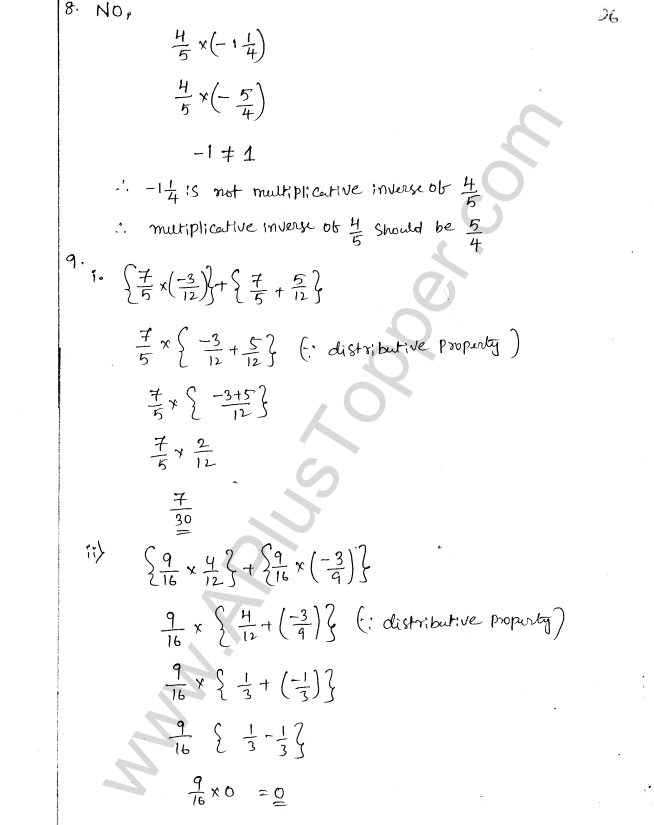 8. NO,
26
4/5 × (-1 1/4)
4/5 × (- 5/4)
-1 ≠ 1
∴ -1 1/4 is not multiplicative inverse of 4/5
∴ multiplicative inverse of 4/5 should be 5/4
9.
i. {7/5 × (-3/12)} + {7/5 + 5/12}
7/5 × {-3/12 + 5/12} (∵ distributive property)
7/5 × {-3+5/12}
7/5 × 2/12
7/30
ii) {9/16 × 4/12} + {9/16 × (-3/9)}
9/16 × {4/12 + (-3/9)} (∵ distributive property)
9/16 × {1/3 + (-1/3)}
9/16 {1/3 - 1/3}
9/16 × 0 = 0
www.APlusTopper.com